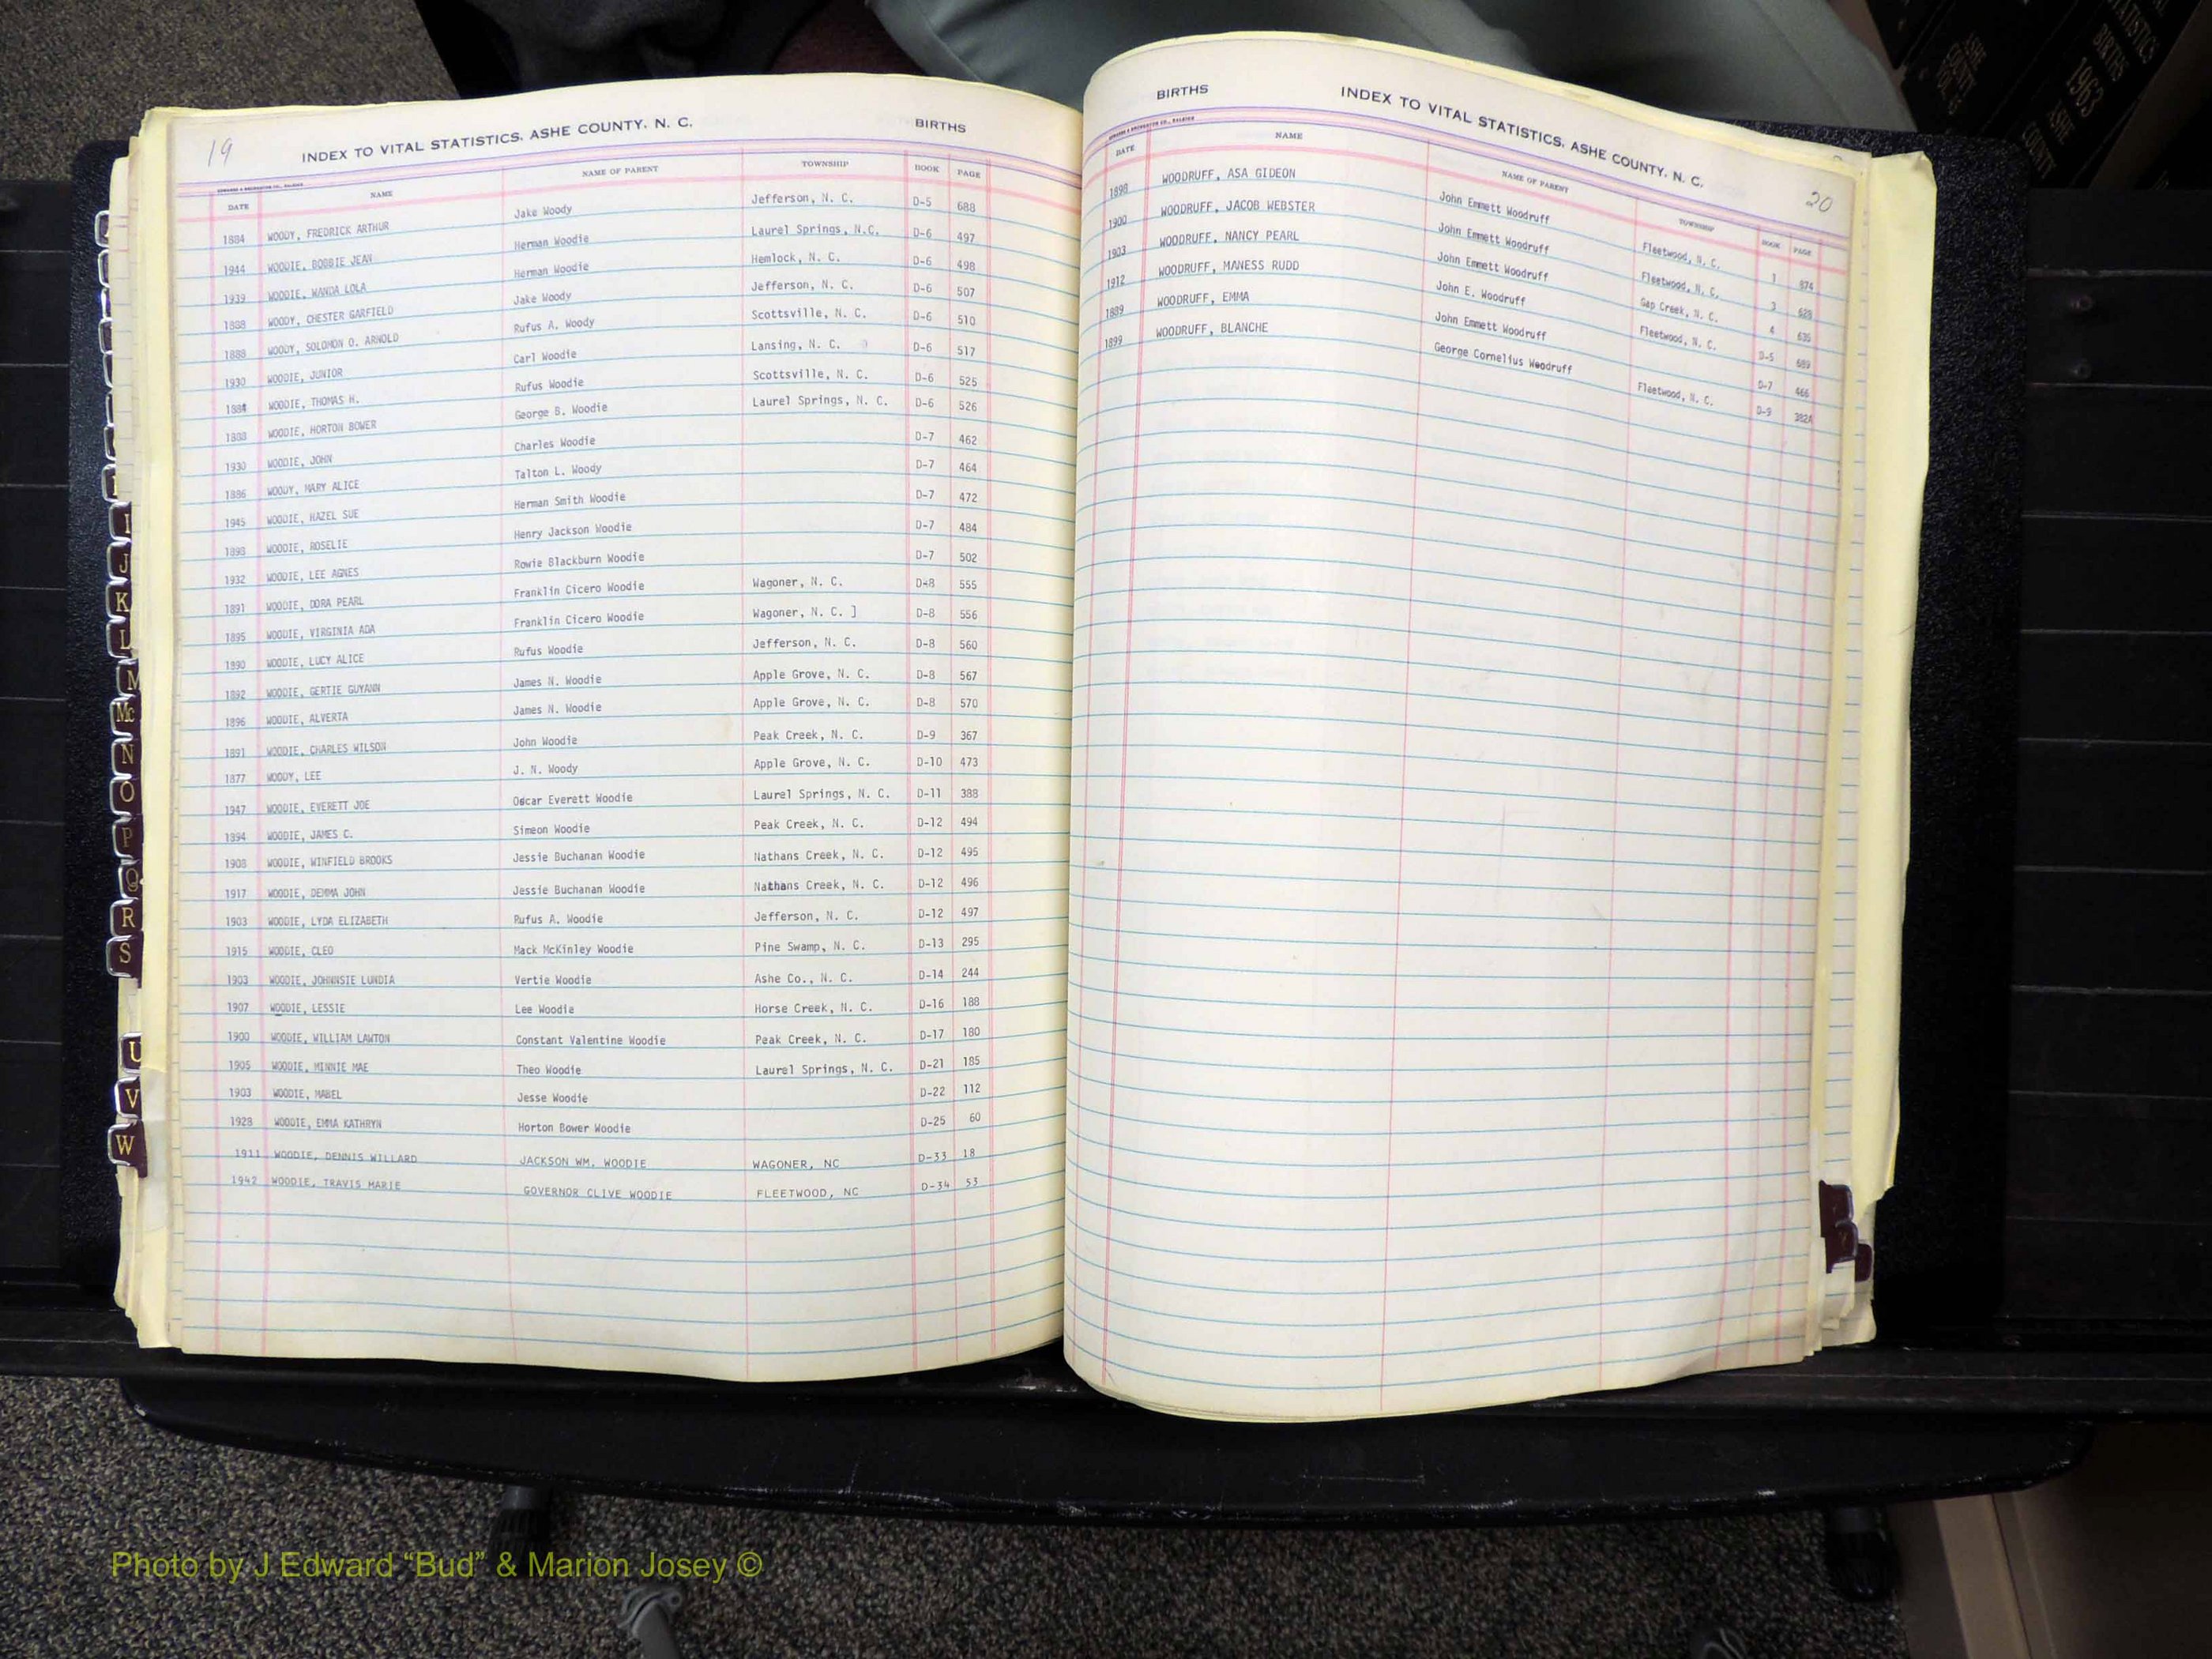 19
INDEX TO VITAL STATISTICS, ASHE COUNTY, N. C. BIRTHS
DATE NAME NAME OF PARENT TOWNSHIP BOOK PAGE
1884 WOODY, FREDRICK ARTHUR Jake Woody Jefferson, N. C. D-5 688
1944 WOODIE, BOBBIE JEAN Herman Woodie Laurel Springs, N.C. D-6 497
1939 WOODIE, WANDA LOLA Herman Woodie Hemlock, N. C. D-6 498
1888 WOODY, CHESTER GARFIELD Jake Woody Jefferson, N. C. D-6 507
1888 WOODY, SOLOMON O. ARNOLD Rufus A. Woody Scottsville, N. C. D-6 510
1930 WOODIE, JUNIOR Carl Woodie Lansing, N. C. D-6 517
1884 WOODIE, THOMAS H. Rufus Woodie Scottsville, N. C. D-6 525
1888 WOODIE, HORTON BOWER George B. Woodie Laurel Springs, N. C. D-6 526
1930 WOODIE, JOHN Charles Woodie D-7 462
1886 WOODY, MARY ALICE Talton L. Woody D-7 464
1945 WOODIE, HAZEL SUE Herman Smith Woodie D-7 472
1898 WOODIE, ROSELIE Henry Jackson Woodie D-7 484
1932 WOODIE, LEE AGNES Rowie Blackburn Woodie D-7 502
1891 WOODIE, DORA PEARL Franklin Cicero Woodie Wagoner, N. C. D-8 555
1895 WOODIE, VIRGINIA ADA Franklin Cicero Woodie Wagoner, N. C. ] D-8 556
1890 WOODIE, LUCY ALICE Rufus Woodie Jefferson, N. C. D-8 560
1892 WOODIE, GERTIE GUYANN James N. Woodie Apple Grove, N. C. D-8 567
1896 WOODIE, ALVERTA James N. Woodie Apple Grove, N. C. D-8 570
1891 WOODIE, CHARLES WILSON John Woodie Peak Creek, N. C. D-9 367
1877 WOODY, LEE J. N. Woody Apple Grove, N. C. D-10 473
1947 WOODIE, EVERETT JOE Oscar Everett Woodie Laurel Springs, N. C. D-11 388
1894 WOODIE, JAMES C. Simeon Woodie Peak Creek, N. C. D-12 494
1908 WOODIE, WINFIELD BROOKS Jessie Buchanan Woodie Nathans Creek, N. C. D-12 495
1917 WOODIE, DEMMA JOHN Jessie Buchanan Woodie Nathans Creek, N. C. D-12 496
1903 WOODIE, LYDA ELIZABETH Rufus A. Woodie Jefferson, N. C. D-12 497
1915 WOODIE, CLEO Mack McKinley Woodie Pine Swamp, N. C. D-13 295
1903 WOODIE, JOHNNSIE LUNDIA Vertie Woodie Ashe Co., N. C. D-14 244
1907 WOODIE, LESSIE Lee Woodie Horse Creek, N. C. D-16 188
1900 WOODIE, WILLIAM LAWTON Constant Valentine Woodie Peak Creek, N. C. D-17 180
1905 WOODIE, MINNIE MAE Theo Woodie Laurel Springs, N. C. D-21 185
1903 WOODIE, MABEL Jesse Woodie D-22 112
1928 WOODIE, EMMA KATHRYN Horton Bower Woodie D-25 60
1911 WOODIE, DENNIS WILLARD JACKSON WM. WOODIE WAGONER, NC D-33 18
1942 WOODIE, TRAVIS MARIE GOVERNOR CLIVE WOODIE FLEETWOOD, NC D-34 53
BIRTHS INDEX TO VITAL STATISTICS, ASHE COUNTY, N. C.
20
DATE NAME NAME OF PARENT TOWNSHIP BOOK PAGE
1898 WOODRUFF, ASA GIDEON John Emmett Woodruff Fleetwood, N. C. 1 674
1900 WOODRUFF, JACOB WEBSTER John Emmett Woodruff Fleetwood, N. C. 3 628
1903 WOODRUFF, NANCY PEARL John Emmett Woodruff Gap Creek, N. C. 4 635
1912 WOODRUFF, MANESS RUDD John E. Woodruff Fleetwood, N. C. D-5 689
1889 WOODRUFF, EMMA John Emmett Woodruff D-7 466
1899 WOODRUFF, BLANCHE George Cornelius Woodruff Fleetwood, N. C. D-9 382A
I
J
K
L
M
Mc
N
O
P
Q
R
S
U
V
W
ASHE
COUNTY
STATISTICS
BIRTHS
1963
ASHE
COUNTY
Photo by J Edward “Bud” & Marion Josey ©